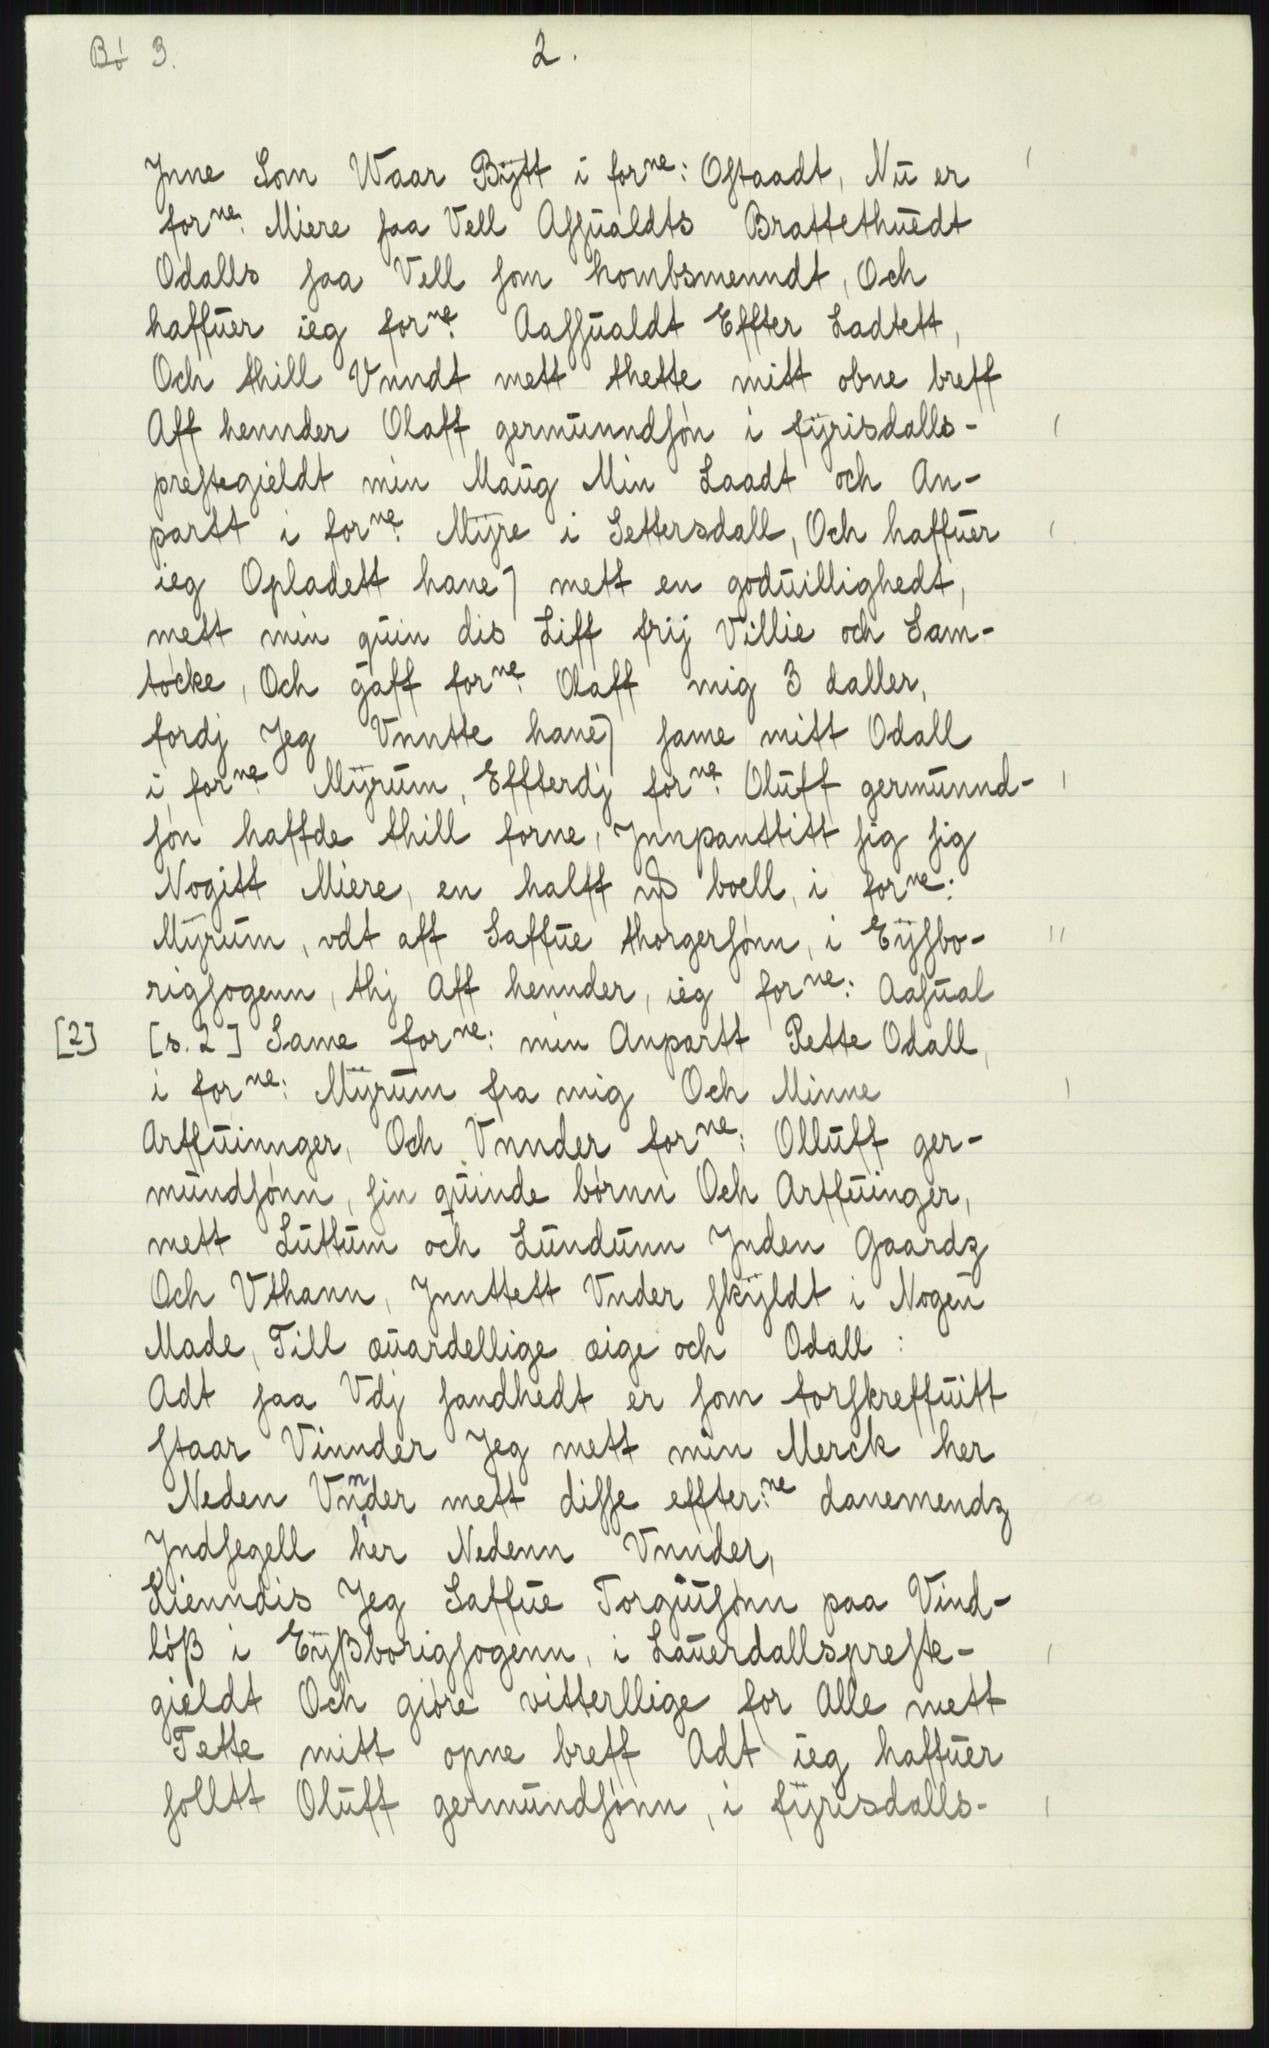 Bö 3.
2.
Jnne Som Waar Bÿtt i for ne: Ostaadt, Nu er
for ne: Miere saa Vell Assualdts Brattethuedt
Odalls saa Vell som hombsmenndt, Och
haffuer ieg for ne: Aassualdt Effter Ladtett,
Och thill Vnndt mett thette mitt obne breff
Aff hennder Olaff germunndsón i fÿrisdalls-
prestegieldt min Maug Min Laadt och An-
partt i for ne: Mÿre i Settersdall, Och haffuer
ieg Opladett hanē mett en goduillighedt,
mett min quin dis Liff frij Villie och Sam-
tócke, Och gaff for ne: Olaff mig 3 daller,
fordj Jeg Vnntte hanē same mitt Odall
i for ne: Mÿrum, Effterdj for ne: Oluff germunnd-
són haffde thill forne, Jnnpanttitt sig sig
Nogitt Miere, en halff boell, i for ne:
Mÿrum, vdt aff Saffue thorgersónn, i Eÿsbo-
rigsogenn, thj Aff hennder, ieg for ne: Aasual
[2] [s. 2] Same for ne: min Anpartt Rette Odall,
i for ne: Mÿrum fra mig Och Minne
Arffuinnger, Och Vnnder for ne: Olluff ger-
mundsónn, sin quinde bórnn Och Arffuinger,
mett Luttum och Lundunn Jnden Gaardz
Och Vthann, Jnnttett Vnder skÿldt i Nogen
Made, Till æuardellige æige och Odall:
Adt saa Vdj sandhedt er som forskreffuitt
staar Vinnder Jeg mett min Merck her
Neden Vnnder mett disse effter: ne danemendz
Jndsegell her Nedenn Vnnder,
Kienndis Jeg Saffue Torgiusónn paa Vind-
lóß i Eÿßborigsogenn, i Lauerdallspreste-
gieldt Och gióre vitterllige for Alle mett
Tette mitt opne breff Adt ieg haffuer
solltt Oluff germundsónn, i fÿrisdalls-